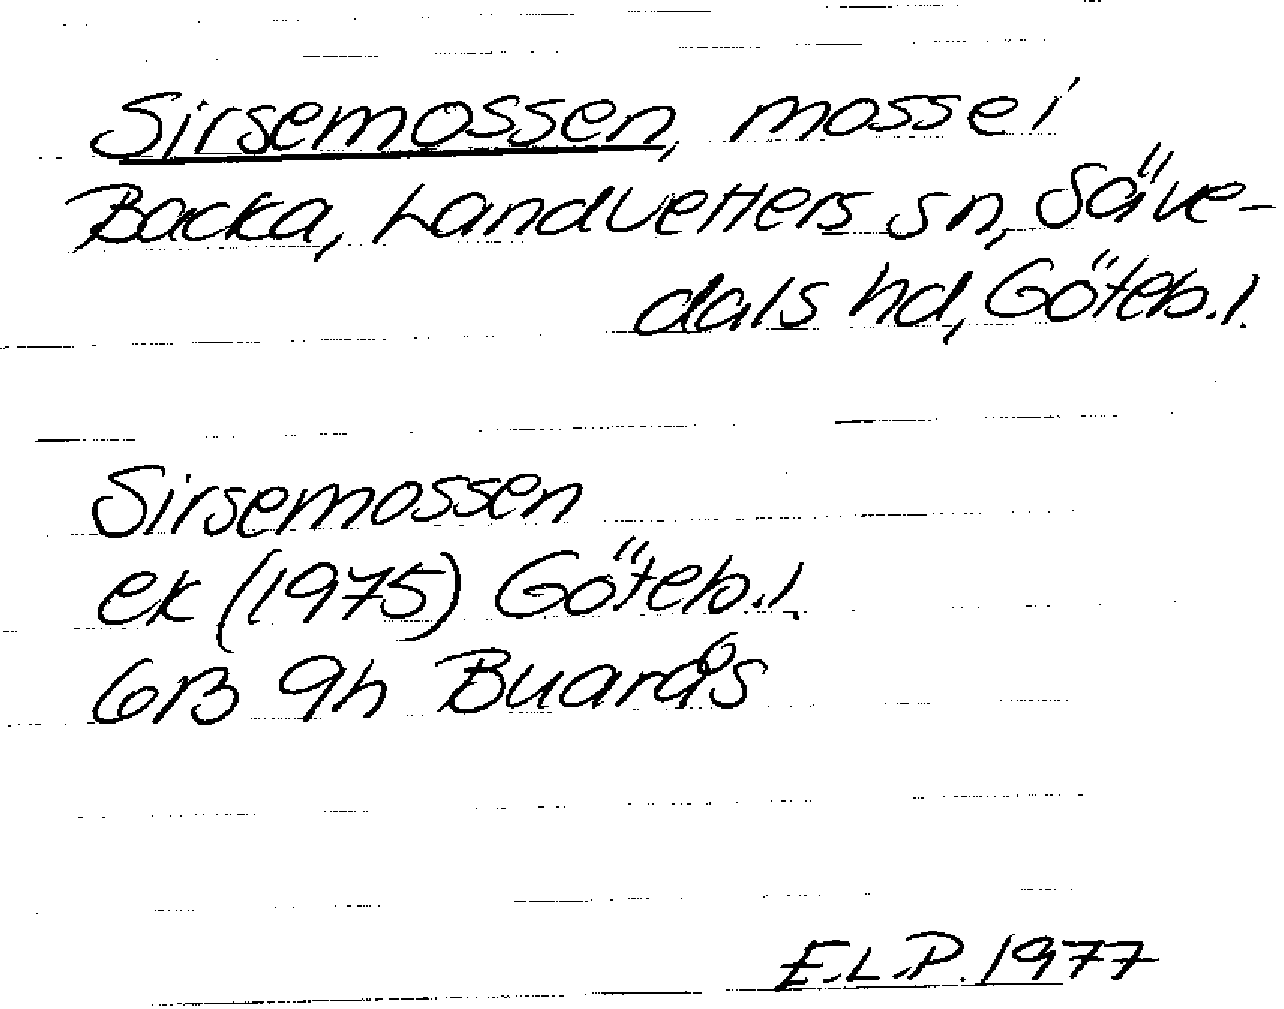 Sirsemossen, mosse i
Backa, Landvetters sn, Säve-
dals hd, Göteb. l.
Sirsemossen
ek (1975) Göteb. l.
6B 9h Buarås
E.L.P. 1977